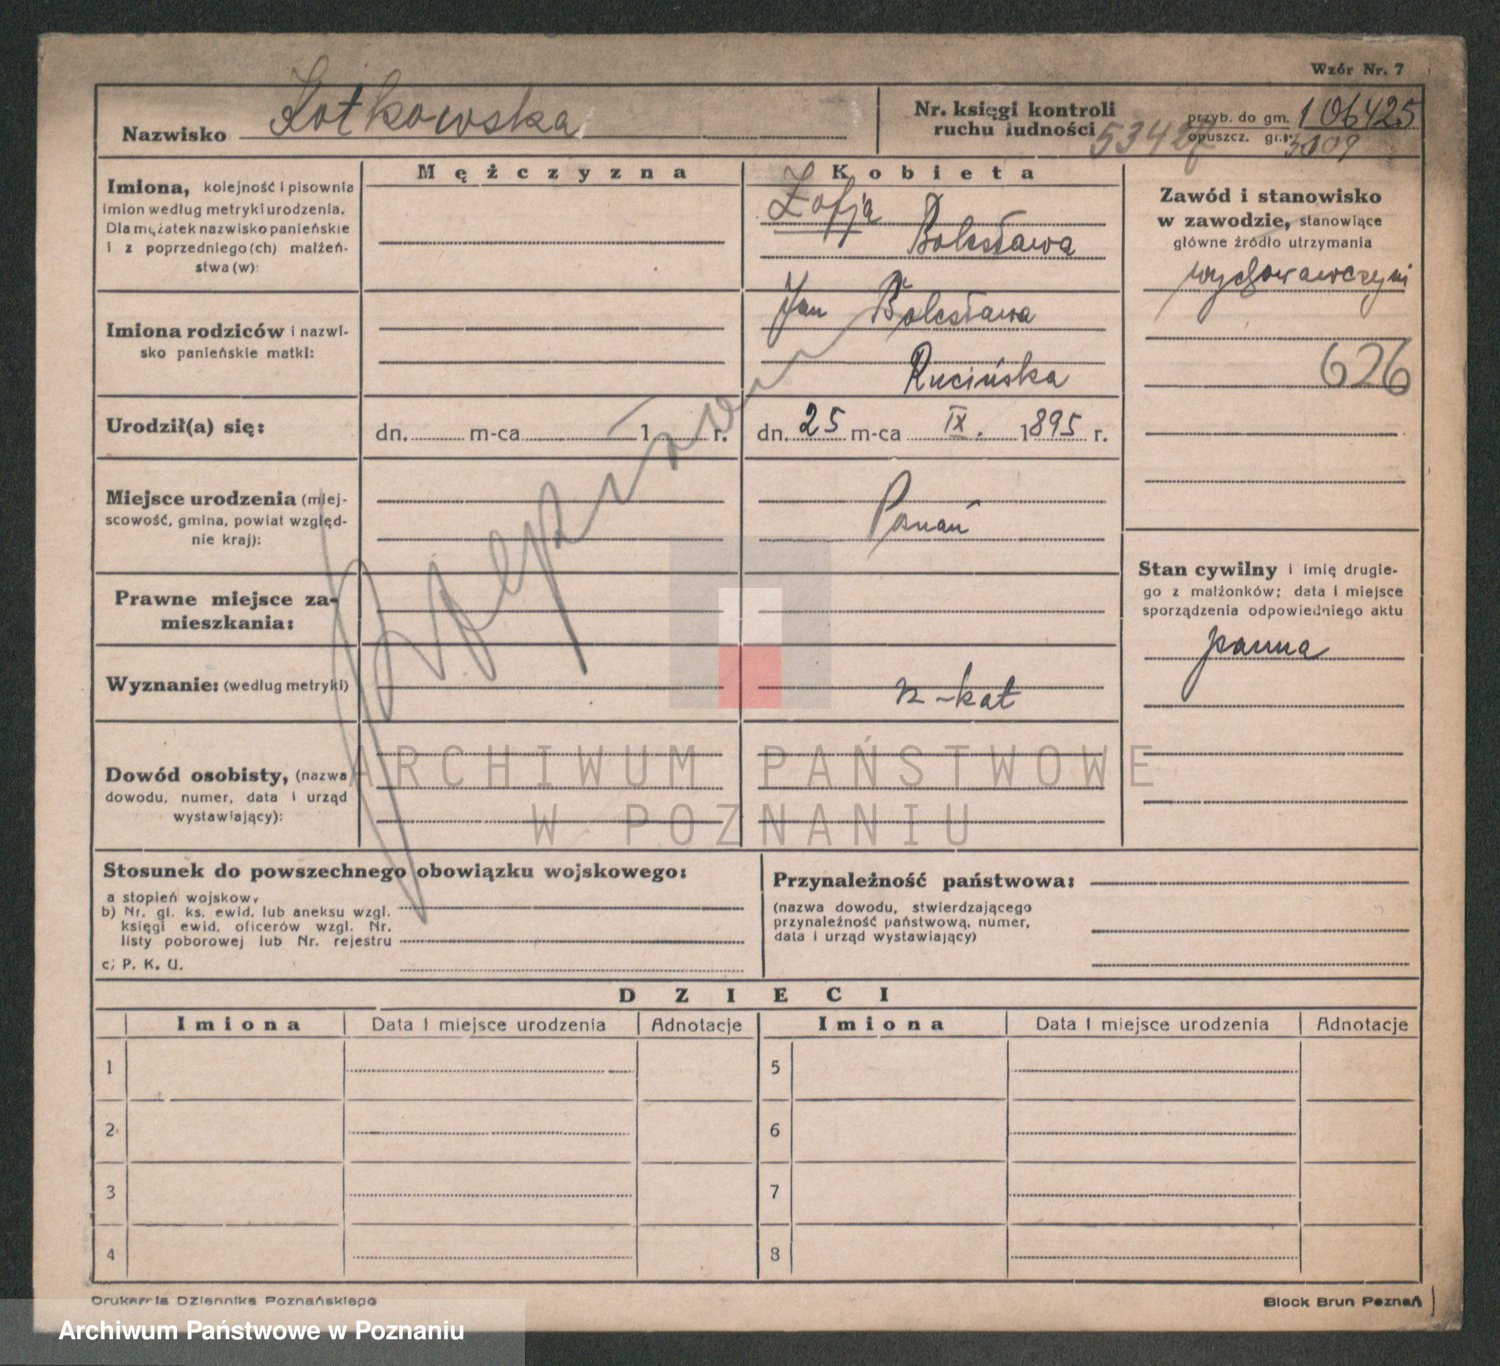 Wzór Nr. 7
Nazwisko Kotkowska
Nr. księgi kontroli
ruchu ludności 53427
przyb. do gm. 106425
opuszcz. gm. 3009
Imiona, kolejność i pisownia
imion według metryki urodzenia.
Dla mężatek nazwisko panieńskie
i z poprzedniego(ch) małżeń-
stwa(w):
Mężczyzna
Kobieta
Zofja
Bolesława
Zawód i stanowisko
w zawodzie, stanowiące
główne źródło utrzymania
wychowawczyni
626
Imiona rodziców i nazwi-
sko panieńskie matki:
Jan Bolesława
Rucińska
Urodził(a) się:
dn. m-ca 1 r.
dn. 25 m-ca IX. 1895 r.
Miejsce urodzenia (miej-
scowość, gmina, powiat względ-
nie kraj):
Poznań
Stan cywilny i imię drugie-
go z małżonków; data i miejsce
sporządzenia odpowiedniego aktu
panna
Prawne miejsce za-
mieszkania:
Wyznanie: (według metryki)
rz-kat
Dowód osobisty, (nazwa
dowodu, numer, data i urząd
wystawiający):
ARCHIWUM PAŃSTWOWE
W POZNANIU
Stosunek do powszechnego obowiązku wojskowego:
a stopień wojskowy
b) Nr. gł. ks. ewid. lub aneksu wzgl.
księgi ewid. oficerów wzgl. Nr.
listy poborowej lub Nr. rejestru
c) P. K. U.
Przynależność państwowa:
(nazwa dowodu, stwierdzającego
przynależność państwową, numer,
data i urząd wystawiający)
DZIECI
Imiona Data i miejsce urodzenia Adnotacje Imiona Data i miejsce urodzenia Adnotacje
1 5
2 6
3 7
4 8
Drukarnia Dziennika Poznańskiego
Block Brun Poznań
Archiwum Państwowe w Poznaniu